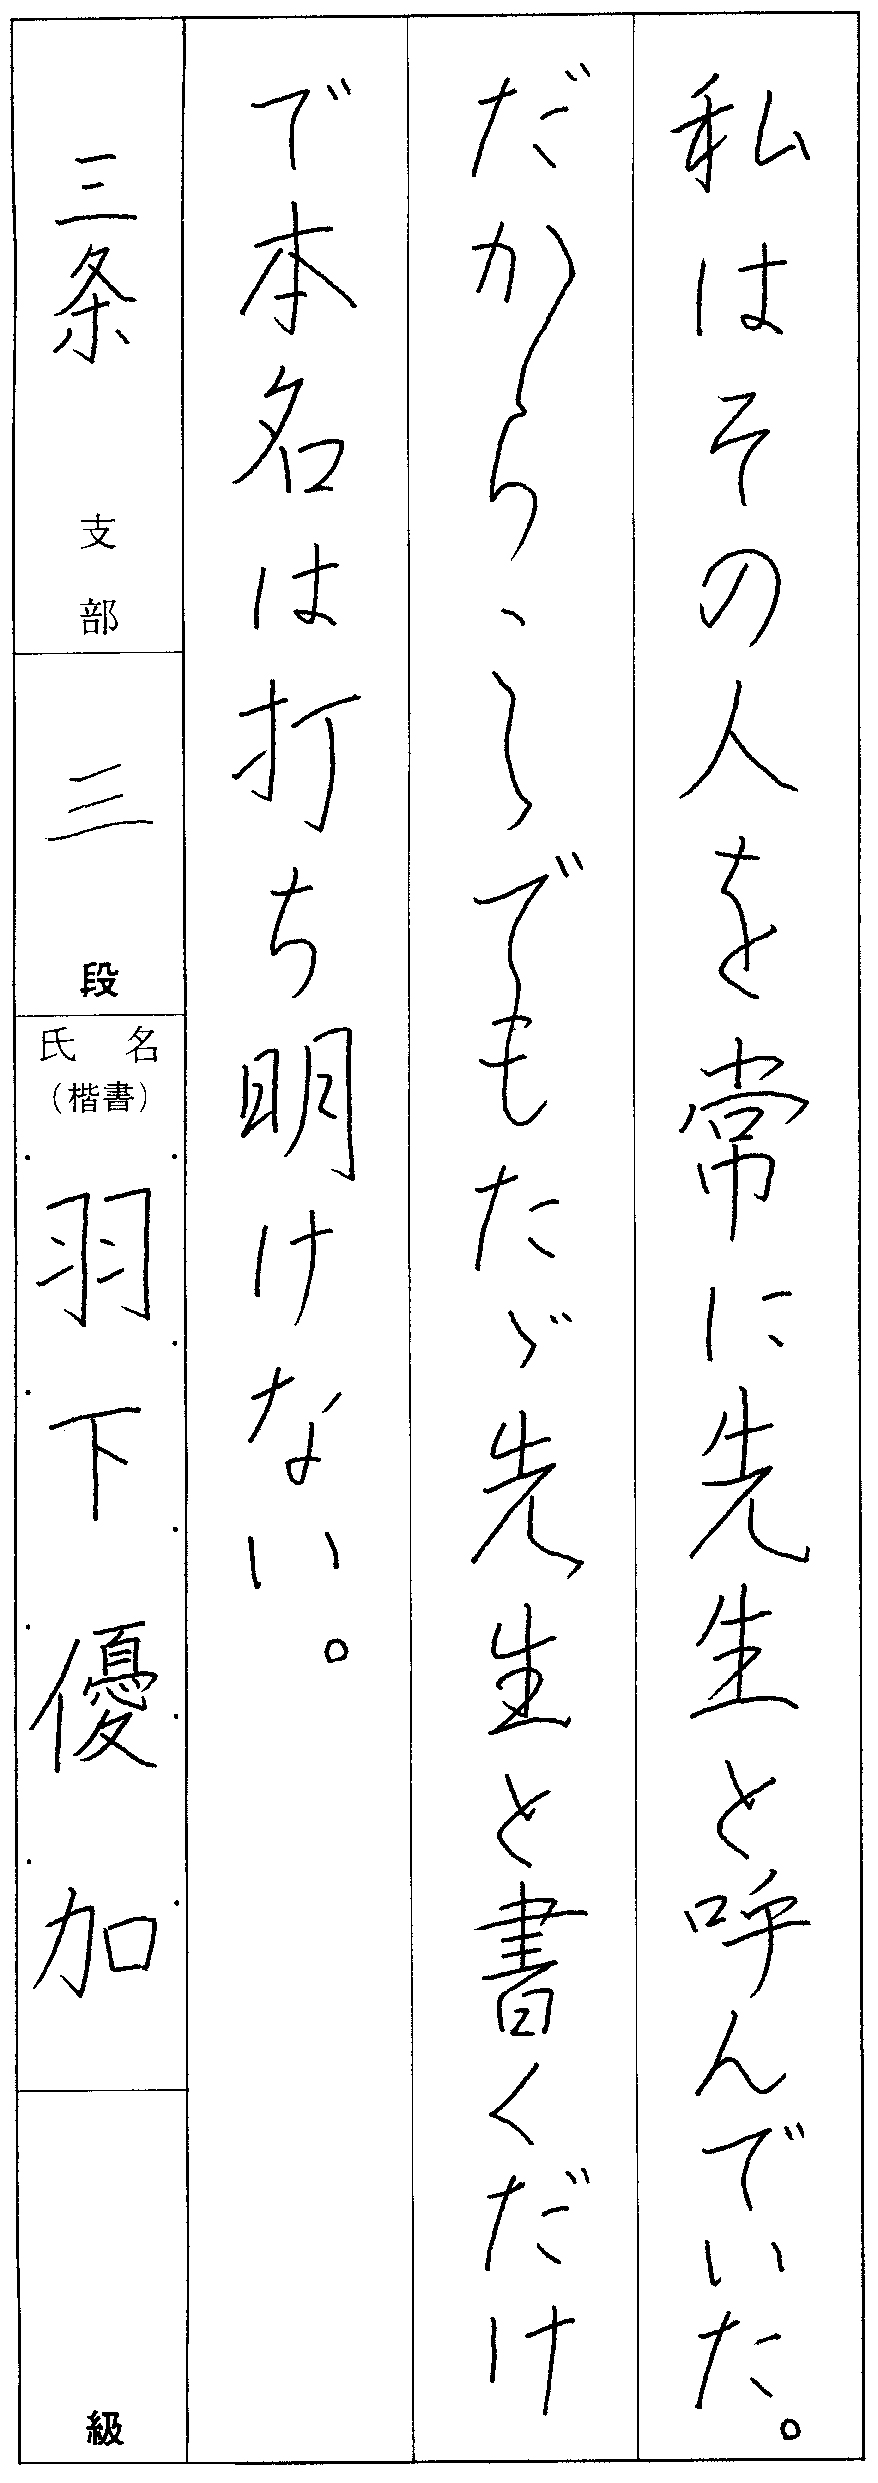 私はその人を常に先生と呼んでいた。
だから、こゝでもたゞ先生と書くだけ
で本名は打ち明けない。
三条 支部
三 段
氏名
(楷書)
羽下優加
級